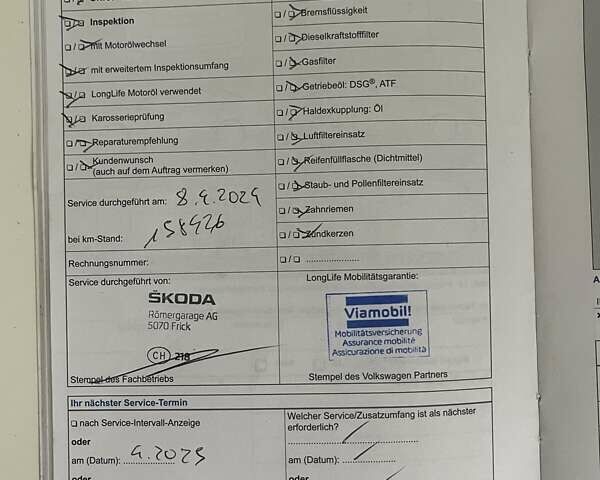 Inspektion
mit Motorölwechsel
mit erweitertem Inspektionsumfang
LongLife Motoröl verwendet
Karosserieprüfung
Reparaturempfehlung
Kundenwunsch
(auch auf dem Auftrag vermerken)
Service durchgeführt am: 8.4.2024
bei km-Stand: 158426
Rechnungsnummer:
Service durchgeführt von:
ŠKODA
Römergarage AG
5070 Frick
CH 218
Stempel des Fachbetriebs
Bremsflüssigkeit
Dieselkraftstofffilter
Gasfilter
Getriebeöl: DSG®, ATF
Haldexkupplung: Öl
Luftfiltereinsatz
Reifenfüllflasche (Dichtmittel)
Staub- und Pollenfiltereinsatz
Zahnriemen
Zündkerzen
LongLife Mobilitätsgarantie:
Viamobil!
Mobilitätsversicherung
Assurance mobilité
Assicurazione di mobilità
Stempel des Volkswagen Partners
Ihr nächster Service-Termin
nach Service-Intervall-Anzeige
oder
am (Datum): 4.2025
oder
Welcher Service/Zusatzumfang ist als nächster
erforderlich?
am (Datum):
oder